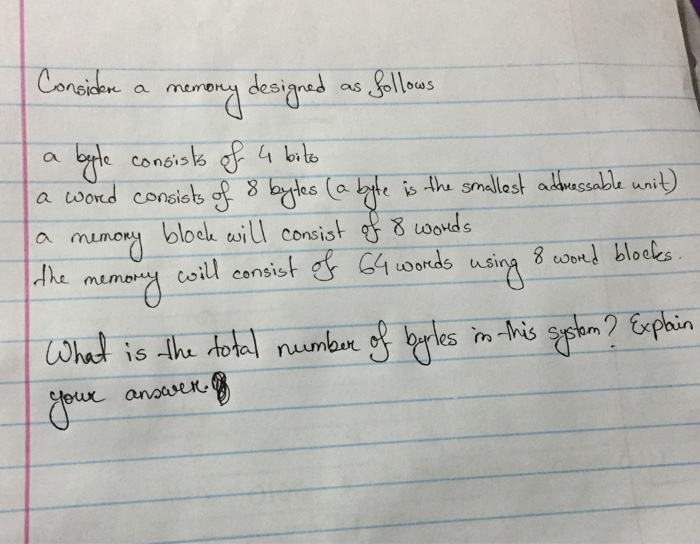 Consider a memory designed as follows
a byte consists of 4 bits
a word consists of 8 bytes (a byte is the smallest addressable unit)
a memory block will consist of 8 words
the memory will consist of 64 words using 8 word blocks.
What is the total number of bytes in this system? Explain
your answer